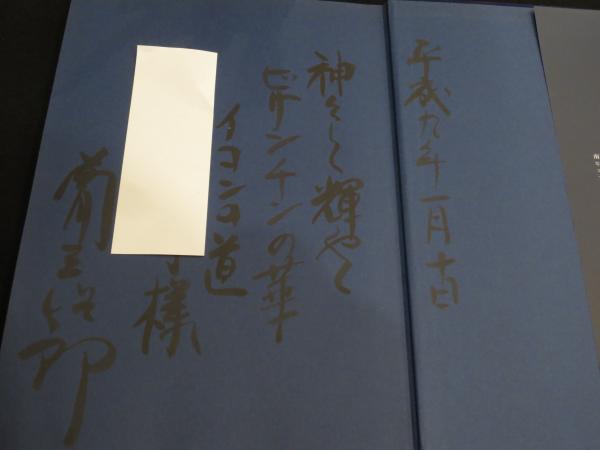 平成九年一月十日
神々しく輝やく
ビザンチンの華
イコンの道
子様